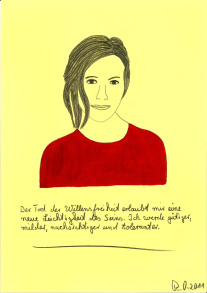 Der Tod der Willensfreiheit erlaubt mir eine
neue Leichtigkeit des Seins. Ich werde gütiger,
milder, nachsichtiger und toleranter.
D. 2011